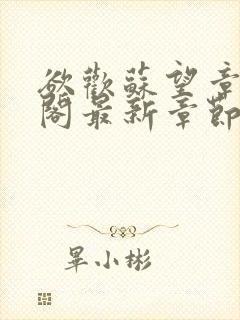 欲歡蘇望章
閣最新章節
畢小彬